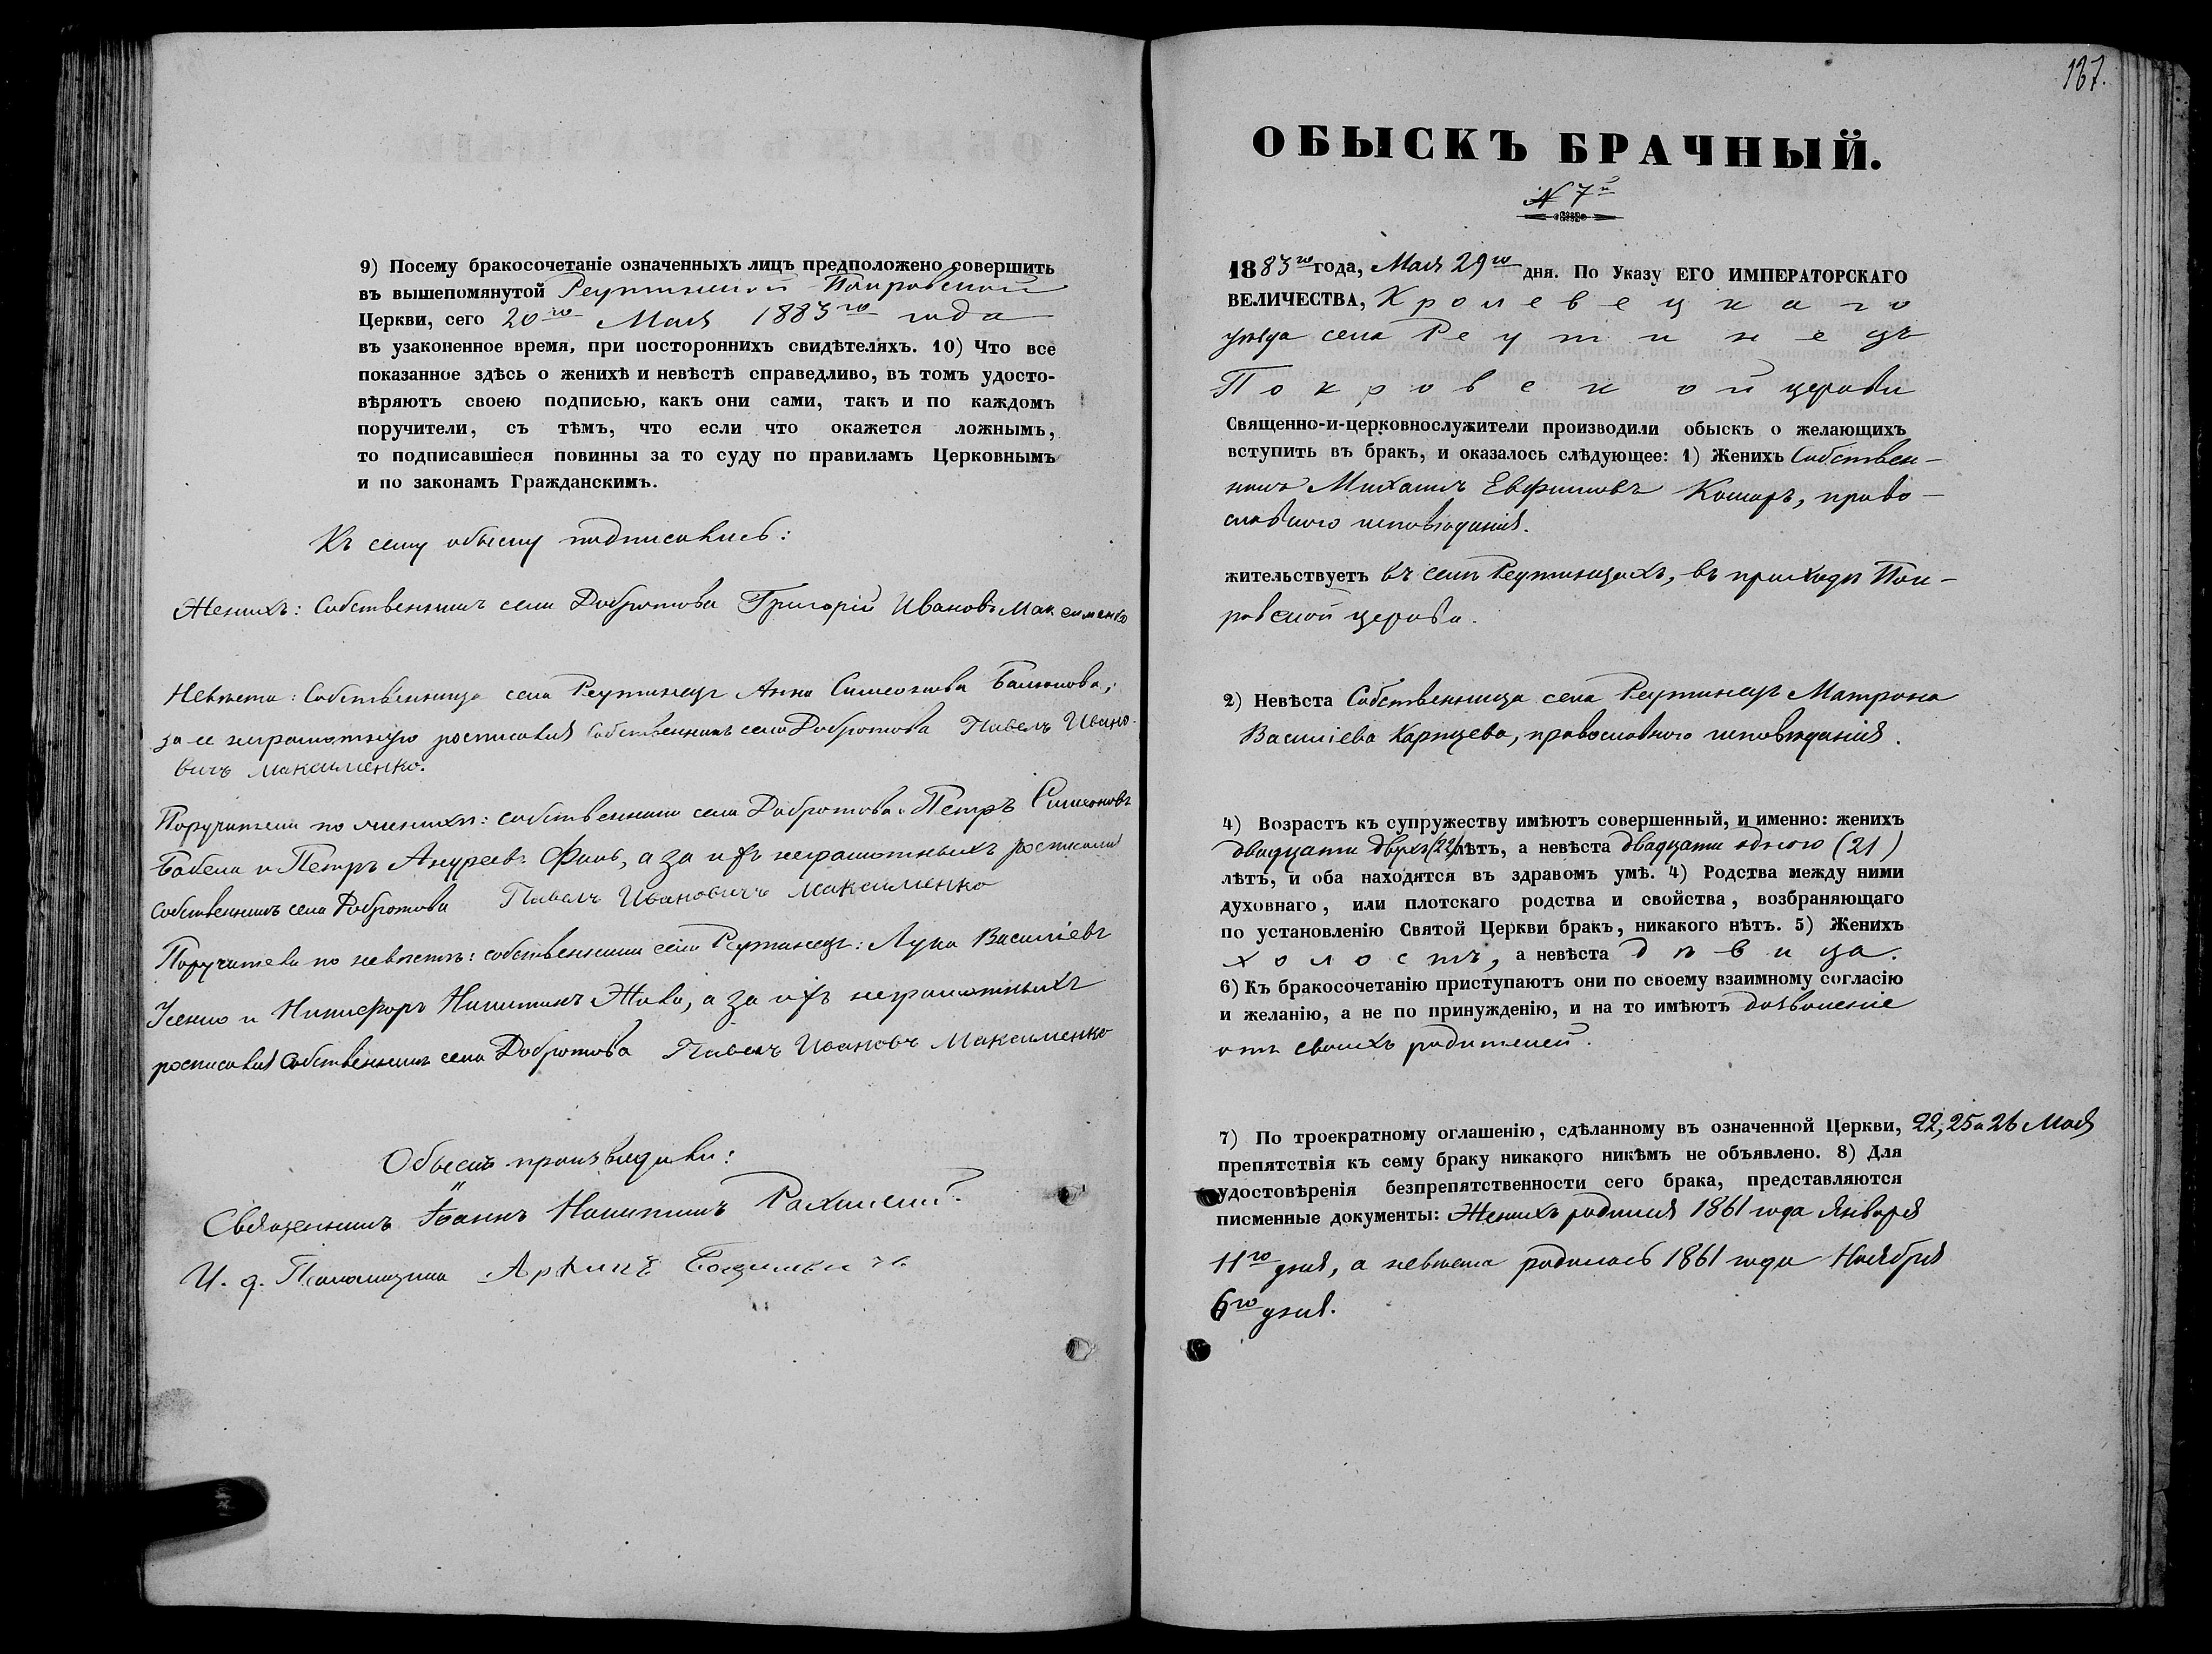 9) Посему бракосочетаніе означенныхъ лицъ предположено совершить
въ вышепомянутой Реутинской Покровской
Церкви, сего 20го Мая 1883го года
въ узаконенное время, при постороннихъ свидѣтеляхъ. 10) Что все
показанное здѣсь о женихѣ и невѣстѣ справедливо, въ томъ удосто-
вѣряютъ своею подписью, какъ они сами, такъ и по каждомъ
поручители, съ тѣмъ, что если что окажется ложнымъ,
то подписавшіеся повинны за то суду по правиламъ Церковнымъ
и по законамъ Гражданскимъ.
Къ сему обыску подписались:
Женихъ: Собственникъ села Добротова Григорій Ивановъ Максименко
Невѣста: Собственница села Реутинецъ Анна Симеонова
за ее неграмотную росписался собственникъ села Добротова Павелъ Ивано-
вичъ Максименко.
Поручители по женихѣ: собственники села Добротова: Петръ Симеоновъ
Бабека и Петръ Андреевъ а за ихъ неграмотныхъ росписался
Собственникъ села Добротова Павелъ Ивановичъ Максименко
Поручители по невѣстѣ: собственники села Реутинецъ: Лука Василіевъ
Усенко и Никифоръ Никитинъ а за ихъ неграмотныхъ
росписался собственникъ села Добротова Павелъ Ивановъ Максименко
Обыскъ производили:
Священникъ Іоаннъ Никитинъ
И. д. Псаломщика
187.
ОБЫСКЪ БРАЧНЫЙ.
N 7й
1883го года, Мая 29го дня. По Указу ЕГО ИМПЕРАТОРСКАГО
ВЕЛИЧЕСТВА, Кролевецкаго
уѣзда села Реутинецъ
Покровской церкви
Священно-и-церковнослужители производили обыскъ о желающихъ
вступить въ бракъ, и оказалось слѣдующее: 1) Женихъ Собствен-
никъ Михаилъ Евфимовъ Кошаръ, право-
славного исповѣданія.
жительствуетъ въ селѣ Реутинцахъ, въ приходѣ Пок-
ровской церкви.
2) Невѣста Собственница села Реутинецъ Матрона
Василіева Карпцева, православного исповѣданія.
4) Возрастъ къ супружеству имѣютъ совершенный, и именно: женихъ
двадцати двухъ (22) лѣтъ, а невѣста двадцати одного (21)
лѣтъ, и оба находятся въ здравомъ умѣ. 4) Родства между ними
духовнаго, или плотскаго родства и свойства, возбраняющаго
по установленію Святой Церкви бракъ, никакого нѣтъ. 5) Женихъ
холостъ, а невѣста дѣвица.
6) Къ бракосочетанію приступаютъ они по своему взаимному согласію
и желанію, а не по принужденію, и на то имѣютъ дозволеніе
отъ своихъ родителей.
7) По троекратному оглашенію, сдѣланному въ означенной Церкви, 22, 25 и 26 Мая
препятствія къ сему браку никакого никѣмъ не объявлено. 8) Для
удостовѣренія безпрепятственности сего брака, представляются
писменные документы: Женихъ родился 1861 года Января
11го дня, а невѣста родилась 1861 года Ноября
6го дня.